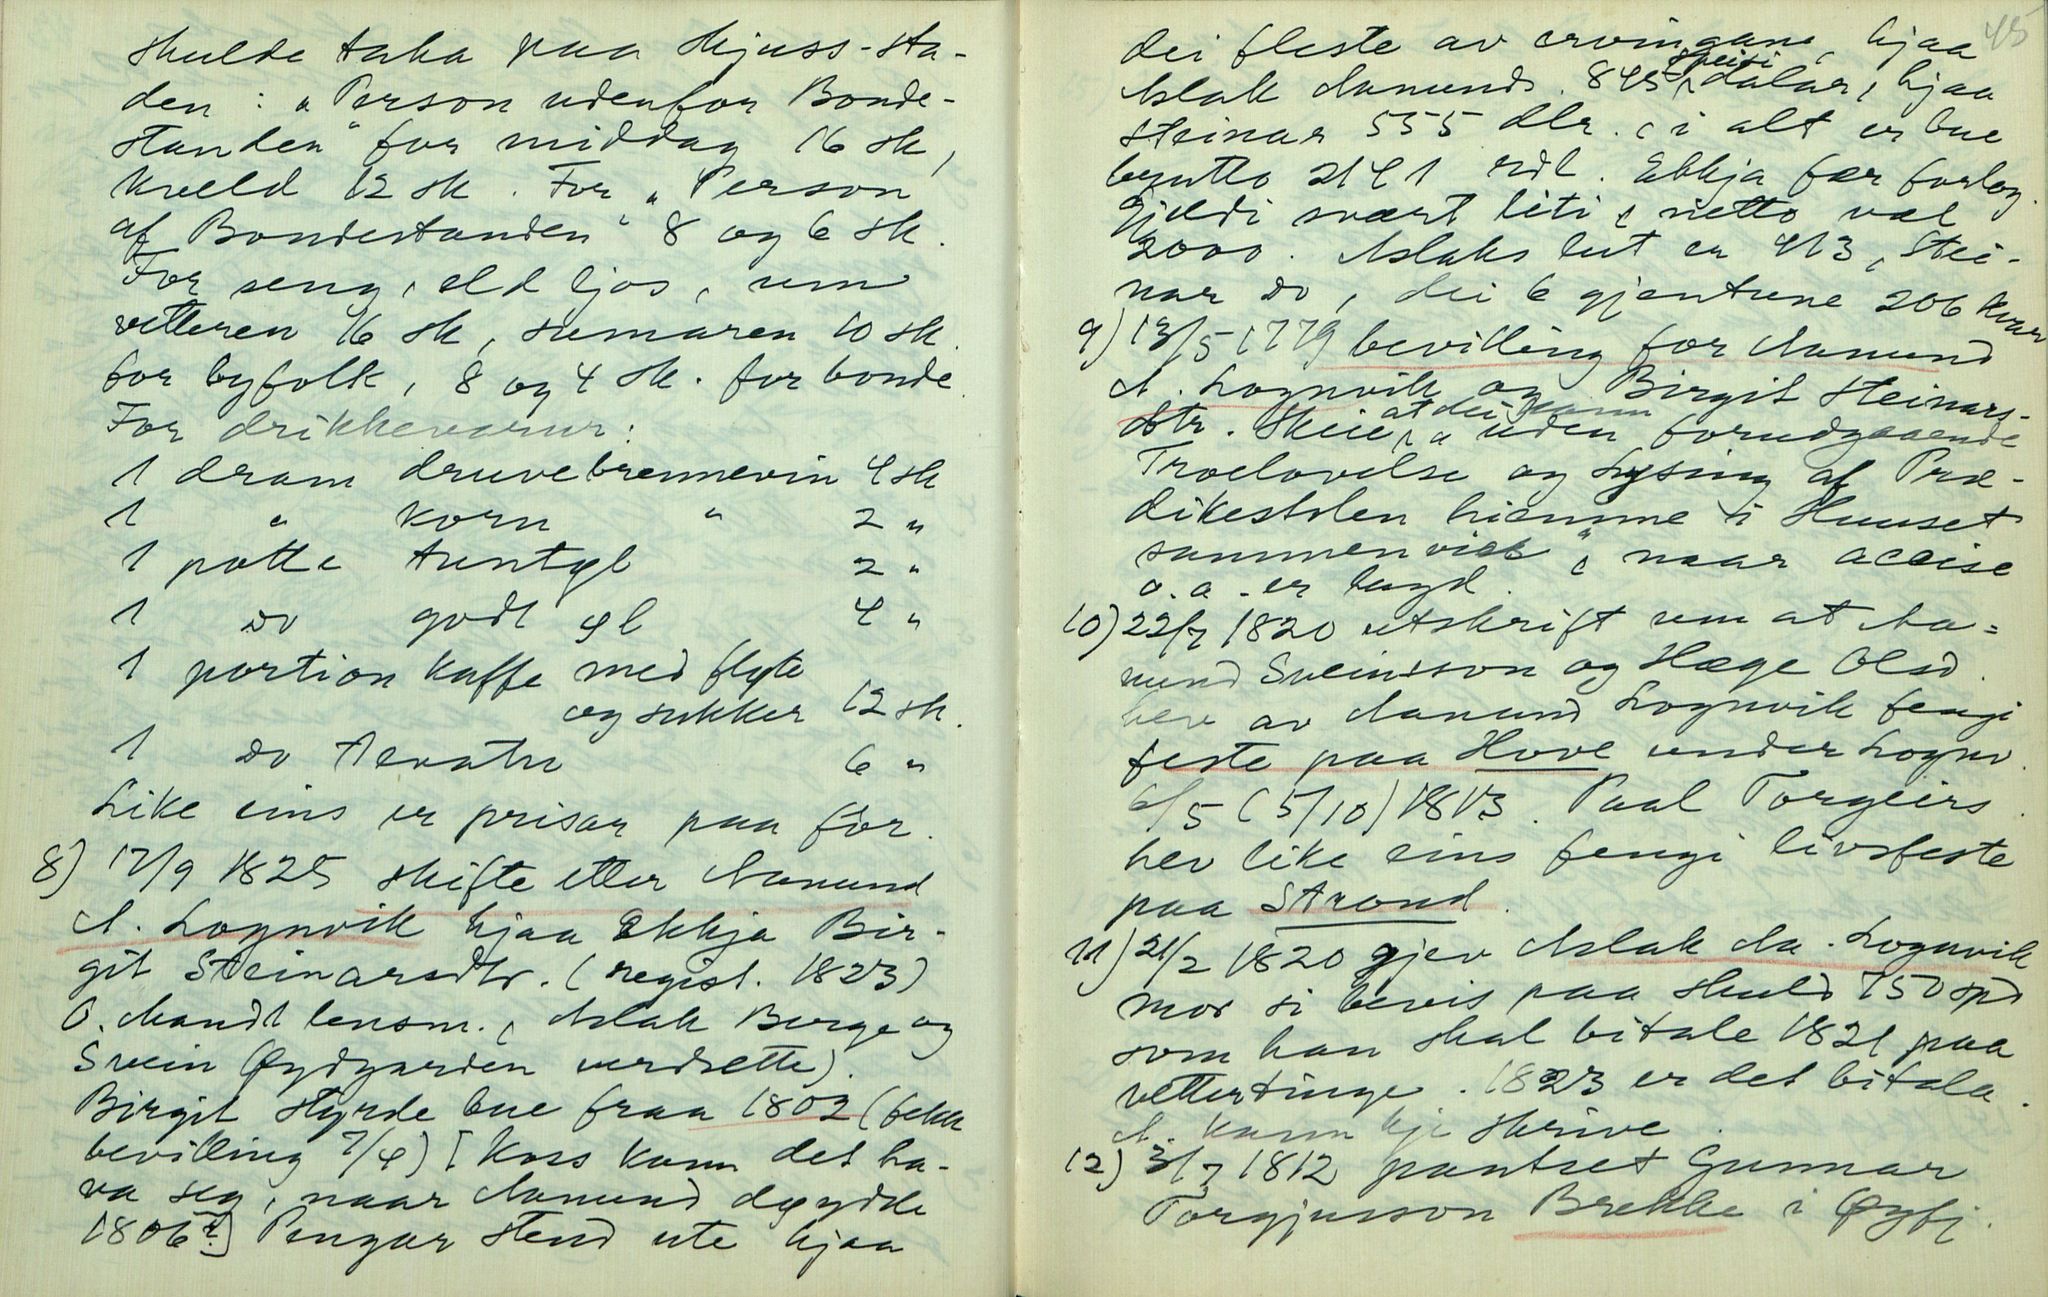 skulde taka paa skjuss-sta-
den: „Person udenfor Bonde-
standen“ for middag 16 sk,
kveld 12 sk. For „Person
af Bondestanden“ 8 og 6 sk.
For seng, eld ljos, um
vetteren 16 sk, sumaren 10 sk.
for byfolk, 8 og 4 sk. for bonde.
For drikkevarur:
1 dram druvebrennevin 4 sk
1 „ korn „ 2 „
1 potte tuntøl 2 „
1 do godt øl 4 „
1 portion kaffe med fløte
og sukker 12 sk.
1 do Tevatn 6 „
Like eins er prisar paa fôr.
8) 17/9 1825 skifte etter Aamund
A. Lognvik hjaa ekkja Bir-
git Steinarsdtr. (regist. 1823)
O. Aamdt lensm., Aslak Berge og
Svein Øydgarden verdsette).
Birgit styrde bue fraa 1802 (fekk
bevilling 7/4) [Koss kann det ha-
va seg, naar Aamund døydde
1806?] Pengar stend ute hjaa
45
dei fleste av ervingane, hjaa
Aslak Aamunds. 845 speси dalar, hjaa
Steinar 555 dlr., i alt er bue
brutto 2141 rdl. Ekkja fær forlog.
Gjeldi svært liti, netto vel
2000. Aslaks lut er 413, Stei-
nar do, dei 6 gjentune 206 kvar
9) 13/5 1779 bevilling for Aamund
A. Lognvik og Birgit Steinars-
dtr. Skeie, at dei kann „uden forudgaaende
Troelovelse og Lysing af Præ-
dikestolen hiemme i Huuset
sammenvies“, naar accise
o.a. er lagd.
10) 22/7 1820 utskrift um at Aa=
mund Sveinsson og Hæge Olsd.
hev av Aamund Lognvik fengi
feste paa Hove under Lognv.
6/5 (5/10) 1813. Paal Torgeirs.
hev like eins fengi livsfeste
paa Strond.
11) 21/2 1820 gjev Aslak Aa. Lognvik
mor si bevis paa skuld 750 spd
som han skal bitale 1821 paa
vettertinge. 1823 er det bitala.
A. kann kje skrive.
12) 3/7 1812 pantset Gunnar
Torgjusson Brekke i Øyfj.